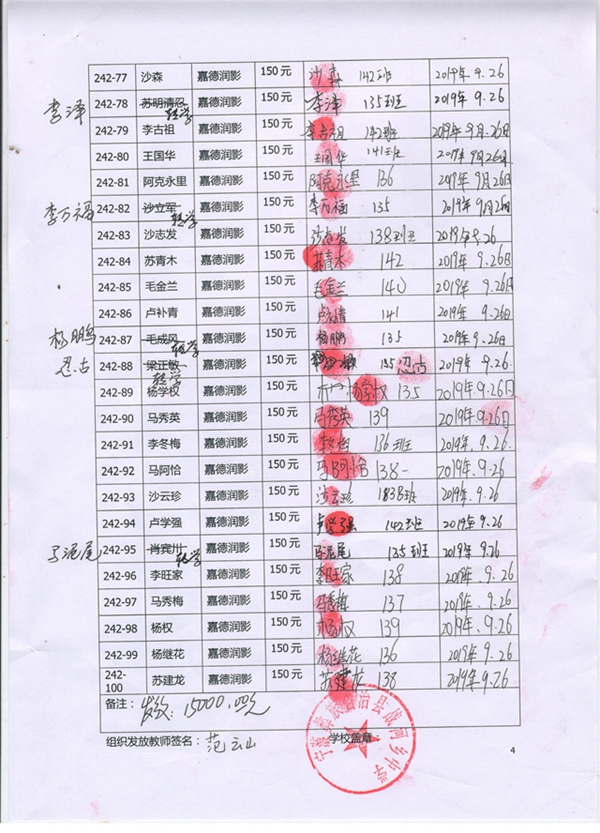 242-77 沙森 嘉德润影 150元 沙森 142班 2019年9.26
李泽 242-78 苏明清忍 转学 嘉德润影 150元 李泽 135班 2019年9.26
242-79 李古祖 嘉德润影 150元 李古祖 142班 2019年9月26日
242-80 王国华 嘉德润影 150元 王国华 141班 2019年9月26日
242-81 阿克永里 嘉德润影 150元 阿克永里 136 2019年9月26日
李万福 242-82 沙立军 转学 嘉德润影 150元 李万福 135 2019年9月26日
242-83 沙志发 嘉德润影 150元 沙志发 138班 2019年9.26
242-84 苏青木 嘉德润影 150元 苏青木 142 2019年9.26日
242-85 毛金兰 嘉德润影 150元 毛金兰 140 2019年9.26日
242-86 卢补青 嘉德润影 150元 141 2019年9.26日
杨鹏 242-87 毛成风 转学 嘉德润影 150元 杨鹏 135 2019年9.26日
忍古 242-88 梁正敏 转学 嘉德润影 150元 135 忍古 2019年9.26
242-89 杨学权 嘉德润影 150元 杨学权 135 2019年9.26日
242-90 马秀英 嘉德润影 150元 马秀英 139 2019年9.26日
242-91 李冬梅 嘉德润影 150元 136班 2019年9.26
242-92 马阿恰 嘉德润影 150元 马阿恰 138 2019年9.26
242-93 沙云珍 嘉德润影 150元 沙云珍 138班 2019年9.26
242-94 卢学强 嘉德润影 150元 卢学强 142班 2019年9.26
马泥尾 242-95 肖宾州 转学 嘉德润影 150元 马泥尾 135班 2019年9.26
242-96 李旺家 嘉德润影 150元 李旺家 138 2019年9.26
242-97 马秀梅 嘉德润影 150元 马秀梅 137 2019年9.26
242-98 杨权 嘉德润影 150元 杨权 139 2019年9.26
242-99 杨继花 嘉德润影 150元 杨继花 136 2019年9.26
242-100 苏建龙 嘉德润影 150元 苏建龙 138 2019年9.26
备注：发放：15000.00元
组织发放教师签名：范云山 学校盖章
宁蒗彝族自治县战河乡中学
4